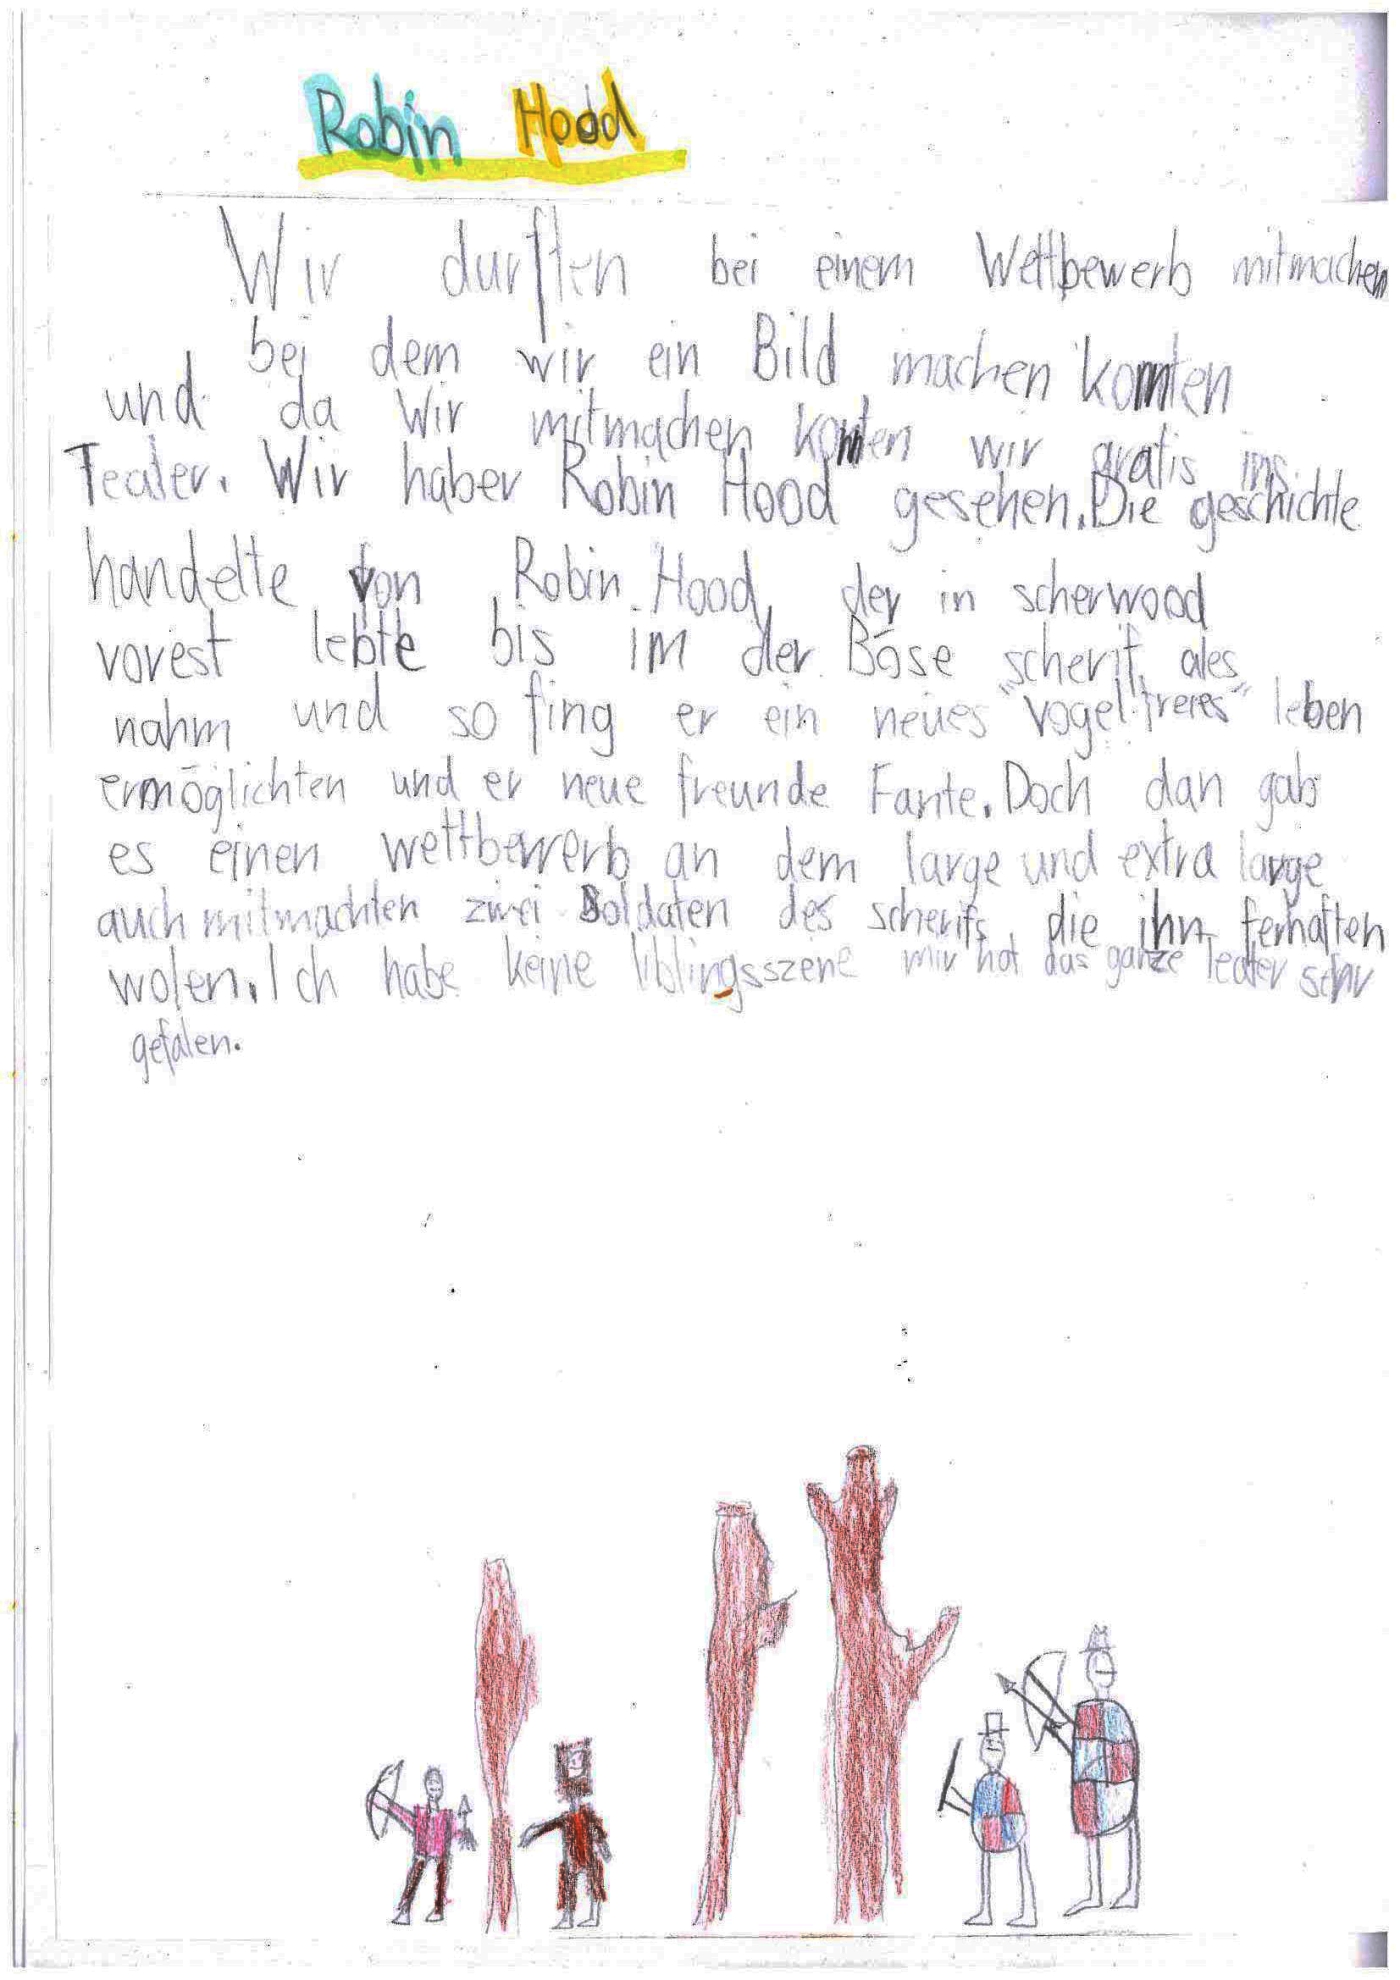 Robin Hood
Wir durften bei einem Wettbewerb mitmachen
bei dem wir ein Bild machen konnten
und da Wir mitmachen konten wir gratis ins
Teater. Wir haber Robin Hood gesehen. Die geschichte
handelte von Robin Hood der in scherwood
vorest lebte bis im der Böse scherif ales
nahm und so fing er ein neues "vogelfreies" leben
ermöglichten und er neue freunde Fante. Doch dan gab
es einen wettbewerb an dem large und extra large
auch mitmachten zwei Soldaten des scherifs, die ihn ferhaften
wolen. Ich habe keine liblingsszene mir hat das ganze Teater sehr
gefalen.